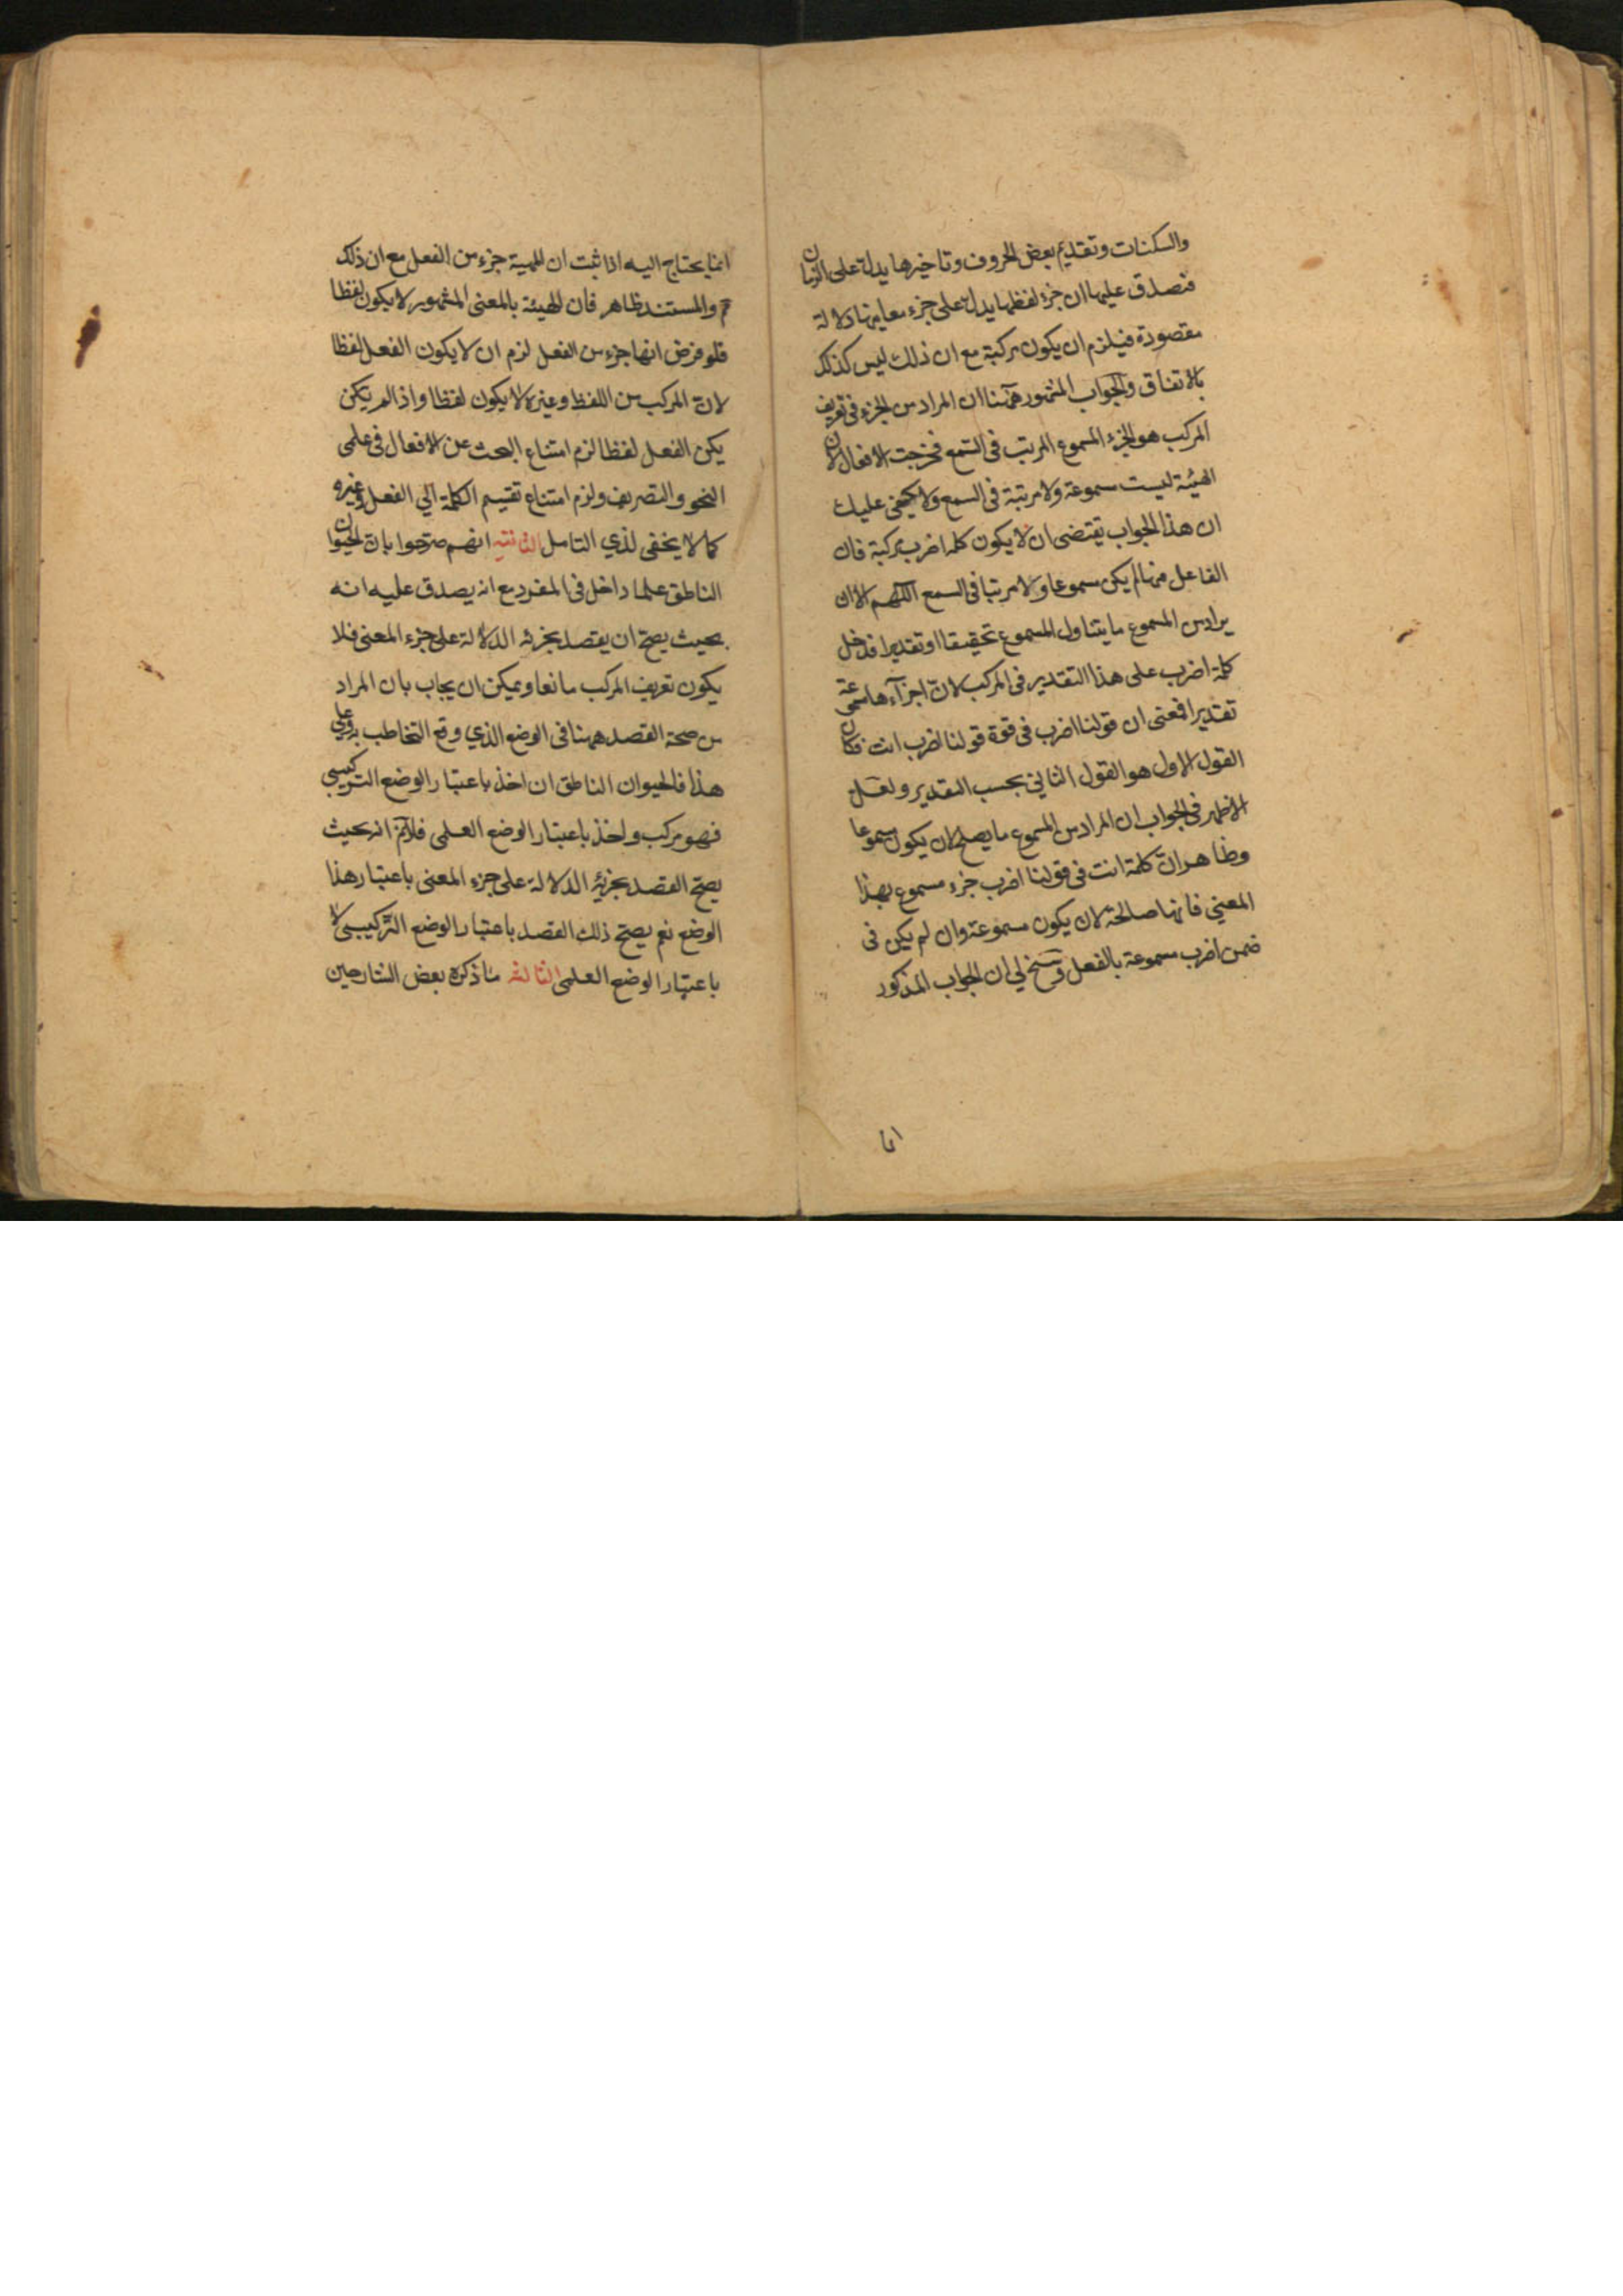 والسكنات وتقديم بعض الحروف وتاخيرها يدل على الزمان
فتصدق عليها ان جزء لفظها يدل على جزء معانيها دلالة
مقصودة فيلزم ان يكون مركبة مع ان ذلك ليس كذلك
بالاتفاق والجواب المشهور ههنا ان المراد من الجزء فى تعريف
المركب هو الجزء المسموع المرتب فى السمع فخرجت الافعال لان
الهيئة ليست مسموعة ولا مرتبة فى السمع ولا يخفى عليك
ان هذا الجواب يقتضى ان لا يكون كلمة اضرب مركبة فان
الفاعل منها لم يكن مسموعا ولا مرتبا فى السمع اللهم الا ان
يراد من المسموع ما يتناول المسموع تحقيقا او تقديرا فدخل
كلمة اضرب على هذا التقدير فى المركب لان اجزآءها مسموعة
تقديرا فمعنى ان قولنا اضرب فى قوة قولنا اضرب انت فكان
القول الاول هو القول الثاني بحسب التقدير ولعل
الاظهر فى الجواب ان المراد من المسموع ما يصلح لان يكون مسموعا
وظاهر ان كلمة انت فى قولنا اضرب جزء مسموع بهذا
المعني فانها صالحة لان يكون مسموعة وان لم يكن فى
ضمن اضرب مسموعة بالفعل وسنح لي ان الجواب المذكور
انما
انما يحتاج اليه اذا ثبت ان للهيئة جزء من الفعل مع ان ذلك
م والمستند ظاهر فان الهيئة بالمعنى المشهور لا يكون لفظا
فلو فرض انها جزء من الفعل لزم ان لا يكون الفعل لفظا
لان المركب من اللفظ وغيره لا يكون لفظا واذا لم يكن
يكن الفعل لفظا لزم امتناع البحث عن الافعال فى علمى
النحو والتصريف ولزم امتناع تقسيم الكلمة الي الفعل وغيره
كما لا يخفى لذي التامل الثانية انهم صرحوا بان الحيوان
الناطق علما داخل فى المفرد مع انه يصدق عليه انه
بحيث يصح ان يقصد بجزئه الدلالة على جزء المعنى فلا
يكون تعريف المركب مانعا ويمكن ان يجاب بان المراد
من صحة القصد ههنا فى الوضع الذي وقع التخاطب به وعلى
هذا فالحيوان الناطق ان اخذ باعتبار الوضع التركيبي
فهو مركب ولو اخذ باعتبار الوضع العلمى فلا نم انه بحيث
يصح القصد بجزئه الدلالة على جزء المعنى باعتبار هذا
الوضع نعم يصح ذلك القصد باعتبار الوضع التركيبى لا
باعتبار الوضع العلمى الثالثة ما ذكره بعض الشارحين